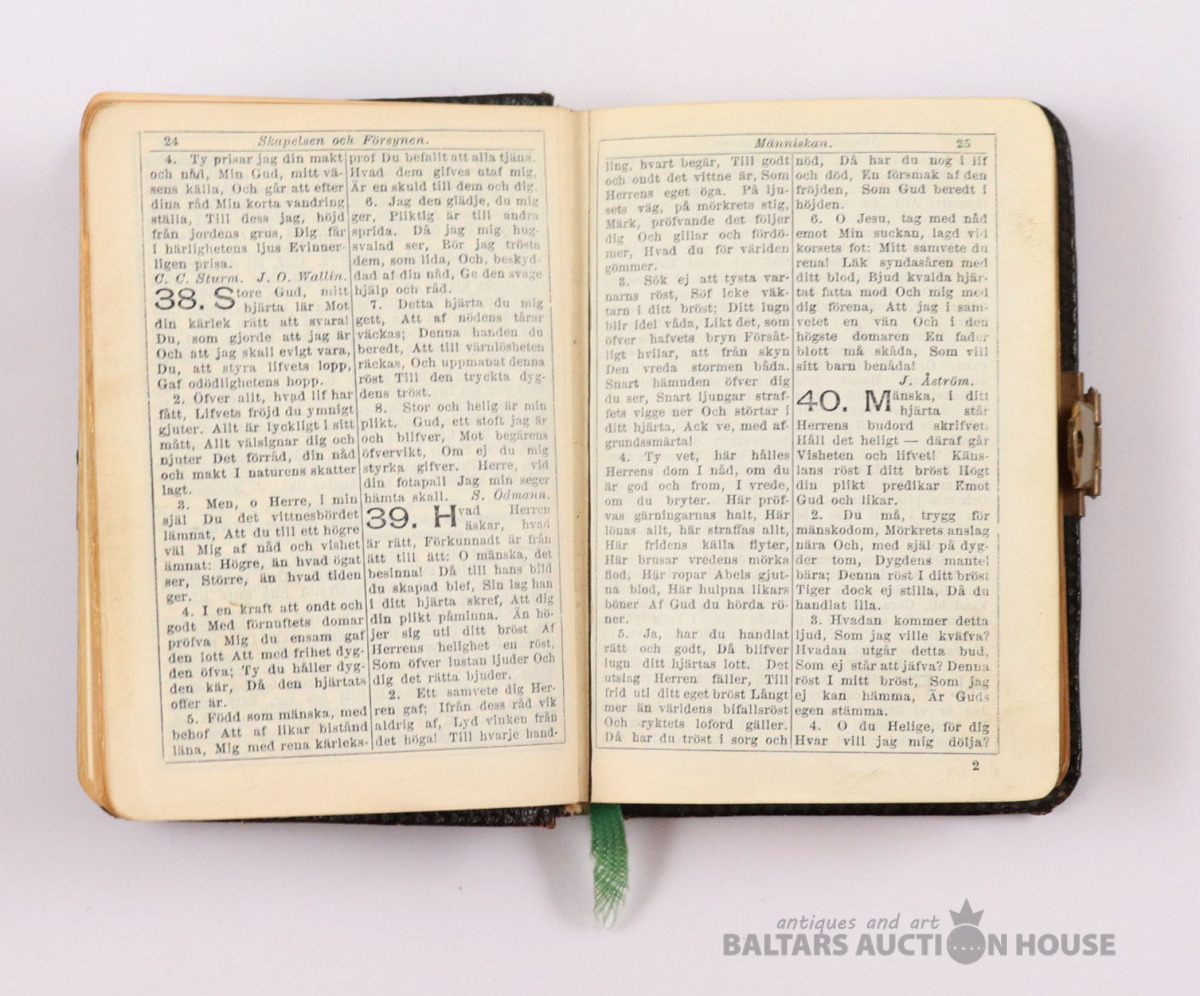 24 Skapelsen och Försynen.
4. Ty prisar jag din makt
och nåd, Min Gud, mitt vä-
sens källa, Och går att efter
dina råd Min korta vandring
ställa, Till dess jag, höjd
från jordens grus, Dig får
i härlighetens ljus Evinner-
ligen prisa.
C. C. Sturm. J. O. Wallin.
38. Store Gud, mitt
hjärta lär Mot
din kärlek rätt att svara!
Du, som gjorde att jag är
Och att jag skall evigt vara,
Du, att styra lifvets lopp,
Gaf odödlighetens hopp.
2. Öfver allt, hvad lif har
fått, Lifvets fröjd du ymnigt
gjuter. Allt är lyckligt i sitt
mått, Allt välsignar dig och
njuter Det förråd, din nåd
och makt I naturens skatter
lagt.
3. Men, o Herre, i min
själ Du det vittnesbördet
lämnat, Att du till ett högre
väl Mig af nåd och vishet
ämnat: Högre, än hvad ögat
ser, Större, än hvad tiden
ger.
4. I en kraft att ondt och
godt Med förnuftets domar
pröfva Mig du ensam gaf
den lott Att med frihet dyg-
den öfva; Ty du håller dyg-
den kär, Då den hjärtats
offer är.
5. Född som mänska, med
behof Att af likar bistånd
läna, Mig med rena kärleks-
prof Du befallt att alla tjäna.
Hvad dem gifves utaf mig,
Är en skuld till dem och dig.
6. Jag den glädje, du mig
ger, Pliktig är till andra
sprida. Då jag mig hug-
svalad ser, Bör jag trösta
dem, som lida, Och, beskyd-
dad af din nåd, Ge den svage
hjälp och råd.
7. Detta hjärta du mig
gett, Att af nödens tårar
väckas; Denna handen du
beredt, Att till värnlösheten
räckas, Och uppmanat denna
röst Till den tryckta dyg-
dens tröst.
8. Stor och helig är min
plikt. Gud, ett stoft jag är
och blifver, Mot begärens
öfvervikt, Om ej du mig
styrka gifver. Herre, vid
din fotapall Jag min seger
hämta skall. S. Ödmann.
39. Hvad Herren
äskar, hvad
är rätt, Förkunnadt är från
ätt till ätt: O mänska, det
besinna! Då till hans bild
du skapad blef, Sin lag han
i ditt hjärta skref, Att dig
din plikt påminna. Än hö-
jer sig uti ditt bröst Af
Herrens helighet en röst,
Som öfver lustan ljuder Och
dig det rätta bjuder.
2. Ett samvete dig Her-
ren gaf; Ifrån dess råd vik
aldrig af, Lyd vinken från
det höga! Till hvarje hand-
Människan. 25
ling, hvart begär, Till godt
och ondt det vittne är, Som
Herrens eget öga. På lju-
sets väg, på mörkrets stig,
Märk, pröfvande det följer
dig Och gillar och fördö-
mer, Hvad du för världen
gömmer.
3. Sök ej att tysta var-
narns röst, Söf icke väk-
tarn i ditt bröst; Ditt lugn
blir idel våda, Likt det, som
öfver hafvets bryn Försåt-
ligt hvilar, att från skyn
Den vreda stormen båda.
Snart hämnden öfver dig
du ser, Snart ljungar straf-
fets vigge ner Och störtar i
ditt hjärta, Ack ve, med af-
grundssmärta!
4. Ty vet, här hålles
Herrens dom I nåd, om du
är god och from, I vrede,
om du bryter. Här pröf-
vas gärningarnas halt, Här
lönas allt, här straffas allt,
Här fridens källa flyter,
Här brusar vredens mörka
flod, Här ropar Abels gjut-
na blod, Här hulpna likars
böner Af Gud du hörda rö-
ner.
5. Ja, har du handlat
rätt och godt, Då blifver
lugn ditt hjärtas lott. Det
utslag Herren fäller, Till
frid uti ditt eget bröst Långt
mer än världens bifallsröst
Och ryktets loford gäller.
Då har du tröst i sorg och
nöd, Då har du nog i lif
och död, En försmak af den
fröjden, Som Gud beredt i
höjden.
6. O Jesu, tag med nåd
emot Min suckan, lagd vid
korsets fot: Mitt samvete du
rena! Läk syndasåren med
ditt blod, Bjud kvalda hjär-
tat fatta mod Och mig med
dig förena, Att jag i sam-
vetet en vän Och i den
högste domaren En fader
blott må skåda, Som vill
sitt barn benåda!
J. Åström.
40. Mänska, i ditt
hjärta står
Herrens budord skrifvet.
Håll det heligt — däraf går
Visheten och lifvet! Käns-
lans röst I ditt bröst Högt
din plikt predikar Emot
Gud och likar.
2. Du må, trygg för
mänskodom, Mörkrets anslag
nära Och, med själ på dyg-
der tom, Dygdens mantel
bära; Denna röst I ditt bröst
Tiger dock ej stilla, Då du
handlat illa.
3. Hvadan kommer detta
ljud, Som jag ville kväfva?
Hvadan utgår detta bud,
Som ej står att jäfva? Denna
röst I mitt bröst, Som jag
ej kan hämma, Är Guds
egen stämma.
4. O du Helige, för dig
Hvar vill jag mig dölja?
2
antiques and art
BALTARS AUCTION HOUSE